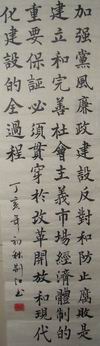 加强黨風廉政建設反對和防止腐敗是
建立和完善社會主義市場經濟體制的
重要保證必須貫穿於改革開放和現代
化建設的全過程
丁亥年初秋